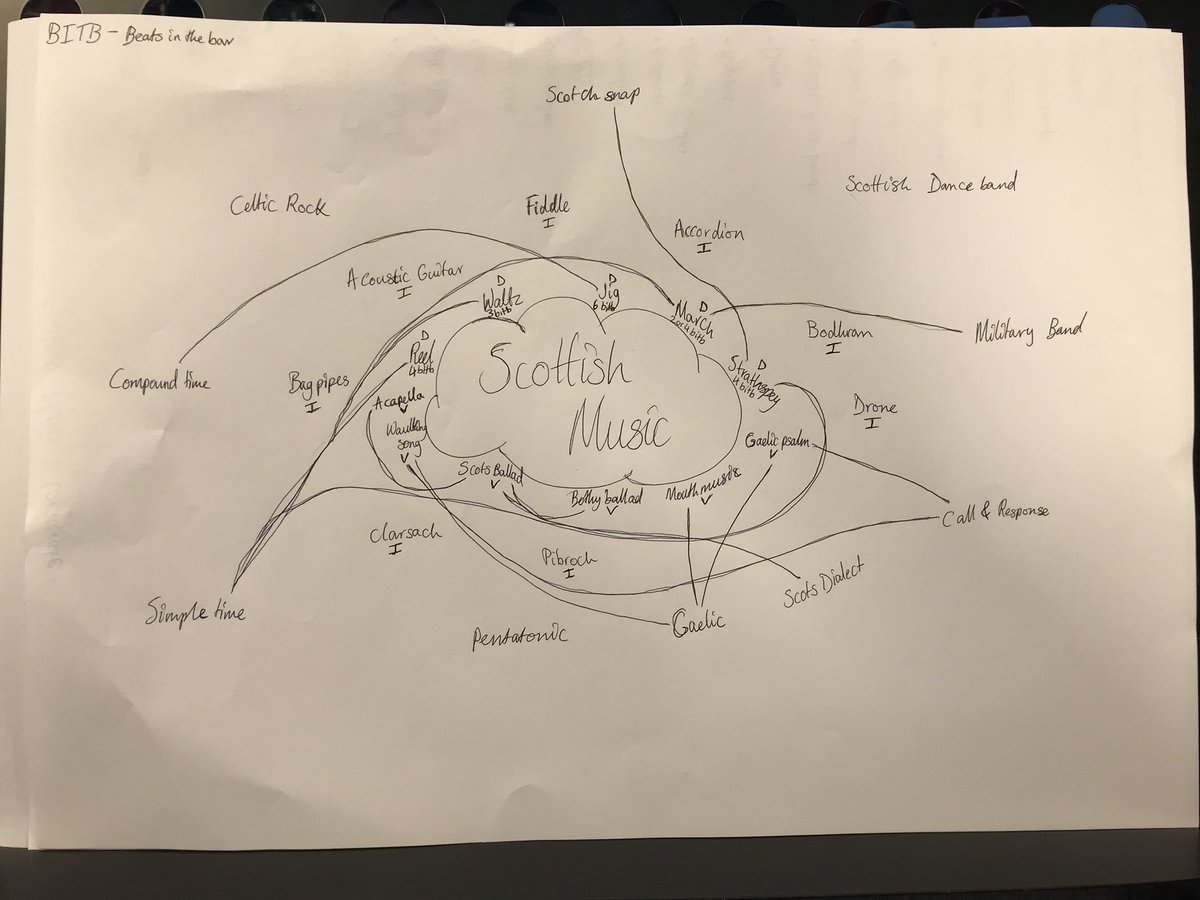 BITB - Beats in the bar
Scotch snap
Scottish Dance band
Celtic Rock
Fiddle
I
Accordion
I
Acoustic Guitar
I
D
Waltz
3 bitb
D
Jig
6 bitb
D
March
2 or 4 bitb
Military Band
Bodhran
I
Compound time
Bagpipes
I
D
Reel
4 bitb
D
Strathspey
4 bitb
Scottish
Music
Drone
I
Acapella
V
Waulking
song
V
Gaelic psalm
V
Scots Ballad
V
Bothy ballad
V
Mouth music
V
Call & Response
Clarsach
I
Pibroch
I
Scots Dialect
Simple time
Pentatonic
Gaelic